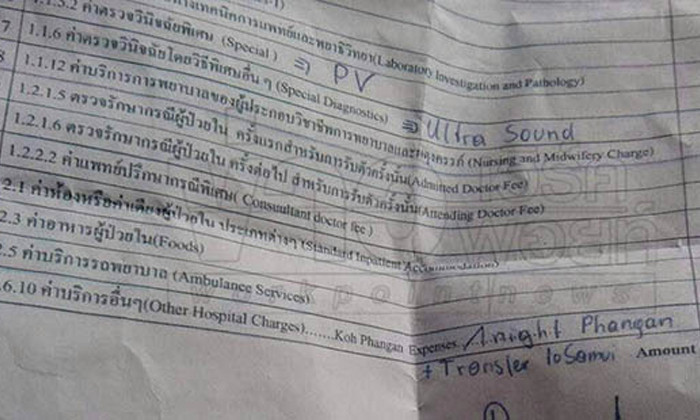 1.1.5.2 ค่าตรวจวินิจฉัยทางเทคนิคการแพทย์และพยาธิวิทยา(Laboratory Investigation and Pathology)
7 1.1.6 ค่าตรวจวินิจฉัยพิเศษ (Special) ⇒ PV
8 1.1.12 ค่าตรวจวินิจฉัยโดยวิธีพิเศษอื่น ๆ (Special Diagnostics) ⇒ Ultra Sound
1.2.1.5 ค่าบริการการพยาบาลของผู้ประกอบวิชาชีพการพยาบาลและผดุงครรภ์ (Nursing and Midwifery Charge)
1.2.1.6 ตรวจรักษากรณีผู้ป่วยใน ครั้งแรกสำหรับการรับตัวครั้งนั้น(Admitted Doctor Fee)
1.2.2.2 ตรวจรักษากรณีผู้ป่วยใน ครั้งต่อไป สำหรับการรับตัวครั้งนั้น(Attending Doctor Fee)
ค่าแพทย์ปรึกษากรณีพิเศษ( Consultant doctor fee )
2.1 ค่าห้องหรือค่าเตียงผู้ป่วยใน ประเภทต่างๆ (Standard Inpatient Accommodation)
2.3 ค่าอาหารผู้ป่วยใน(Foods)
2.5 ค่าบริการรถพยาบาล (Ambulance Services)
6.10 ค่าบริการอื่นๆ(Other Hospital Charges)......Koh Phangan Expenses. 1 night Phangan
+ Transfer to Samui Amount
workpointnews